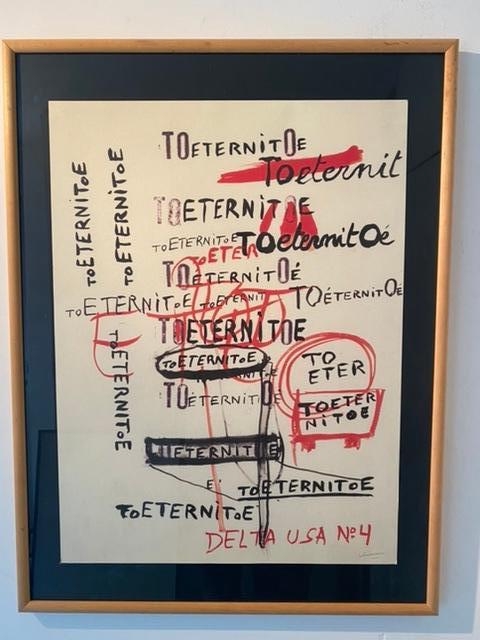 TOETERNITOE
TOeternit
TOETERNITOE
TOETERNITOE TOeternitOé
TOETER
TOETERNITOé
TOETERNITOE TOETERNIT TOéTERNITOE
TOETERNITOE
TOETERNITOE
TO
ETER
TOéTERNITOE
TOETER
NITOE
ETERNIT E
E
TOETERNITOE
TOETERNITOE
DELTA USA Nº4
TOETERNITOE
TOETERNITOE
TOETERNITOE